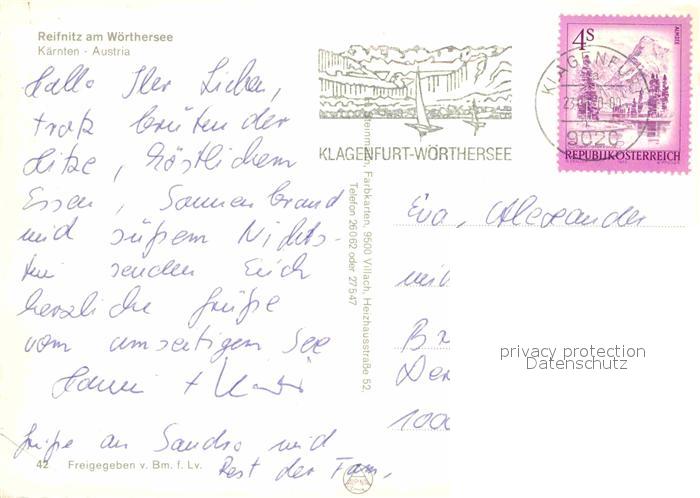 Reifnitz am Wörthersee
Kärnten - Austria
Hallo Ihr Lieben,
trotz brütender
Hitze, köstlichem
Essen, Sonnenbrand
und süßem Nichts-
tun senden Euch
herzliche Grüße
vom umseitigen See
Hanni +
Grüße an Sandra und
Rest der Fam.
42 Freigegeben v. Bm. f. Lv.
Farbkarten, 9500 Villach, Heizhausstraße 52,
Telefon 26062 oder 27547
KLAGENFURT-WÖRTHERSEE
4S
ALMSEE
KLAGENFU
9020
REPUBLIK ÖSTERREICH
Eva, Alexander
mit
B
De
100
privacy protection
Datenschutz